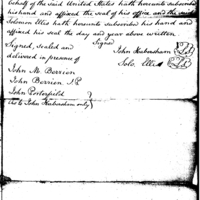 behalf of the said United States hath hereunto subscribed
his hand and affixed the seal of his office and the said
Solomon Ellis hath hereunto subscribed his hand and
affixed his seal the day and year above written
Signed, Sealed and
Signed
delivered in presence of
John Habersham
Solo. Ellis
John M. Berrien
John Berrien J.P.
John Porterfield
(as to John Habersham only)